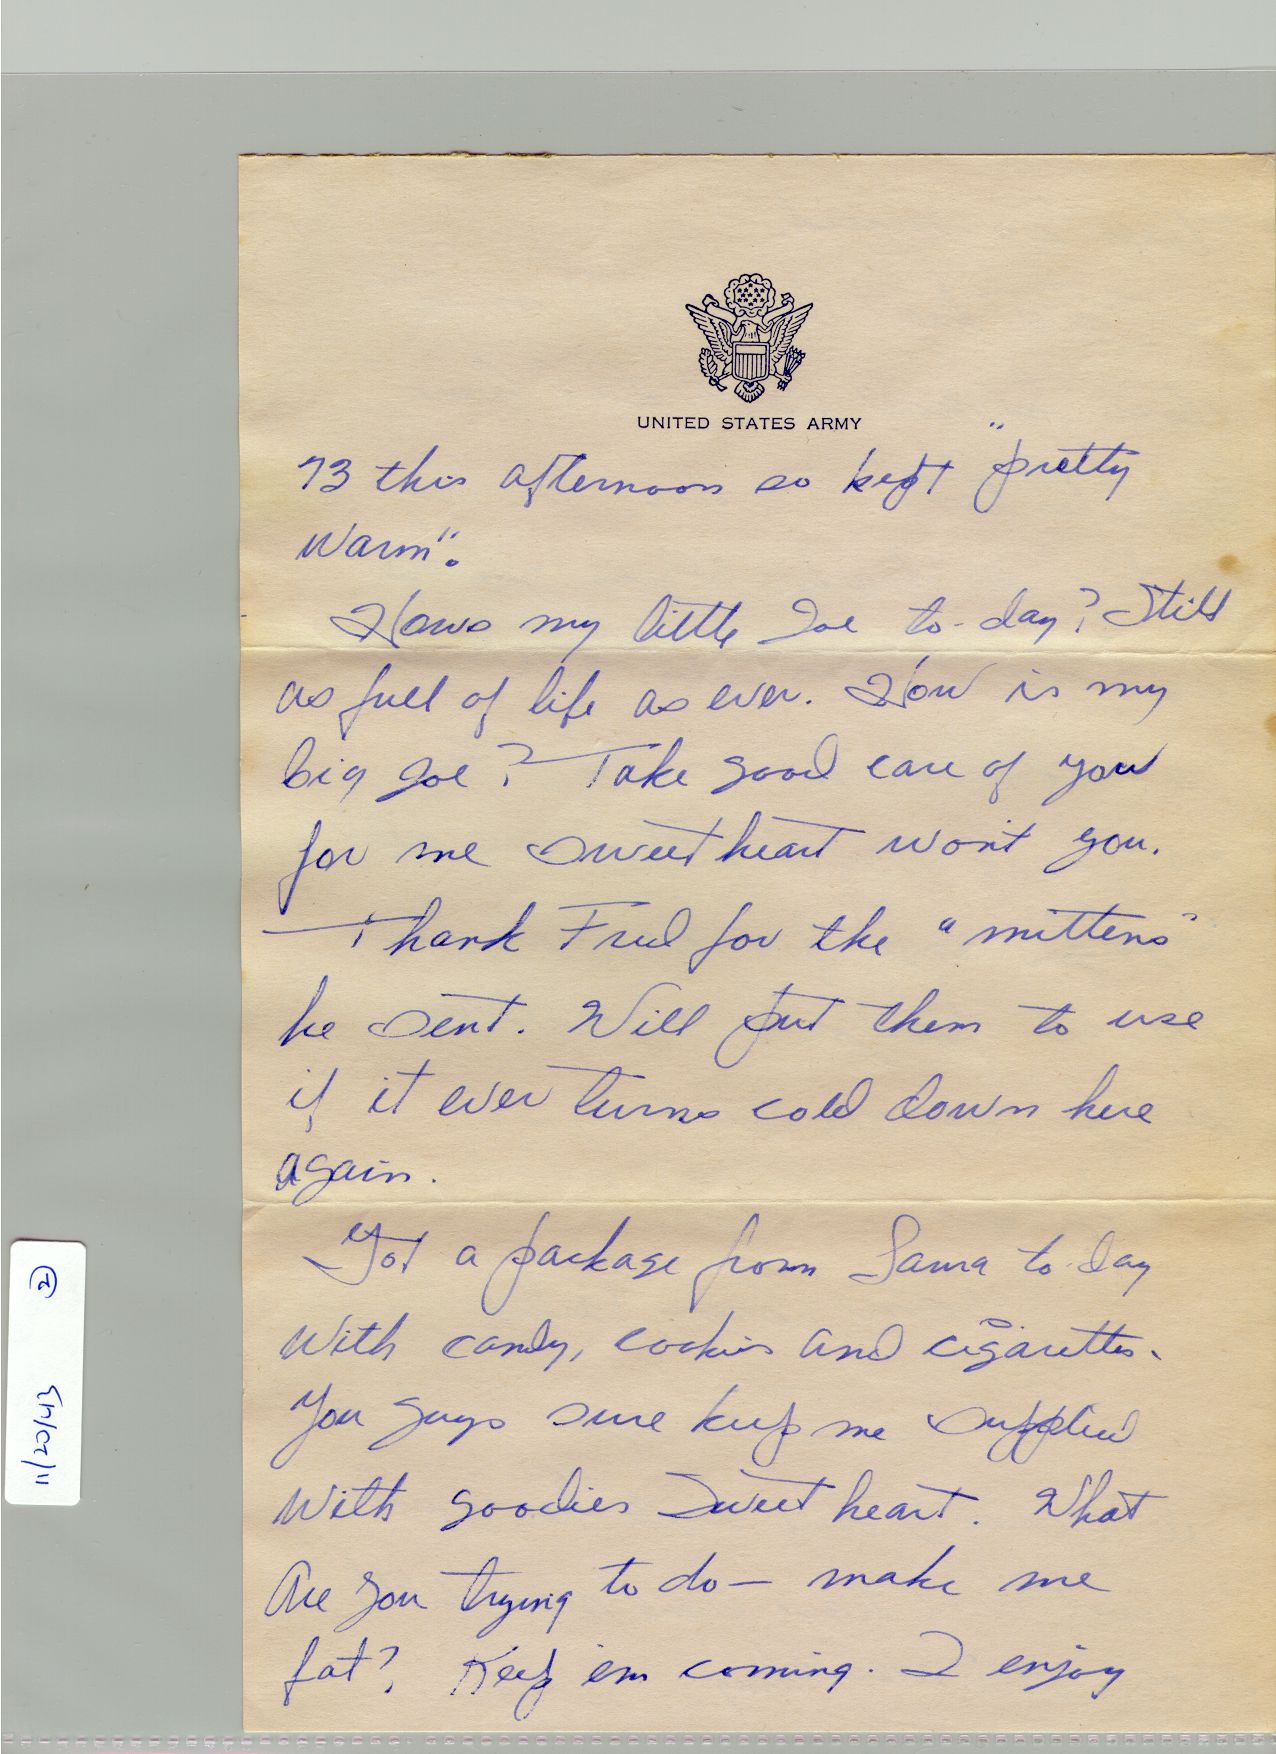 UNITED STATES ARMY
73 this afternoon so kept "pretty
warm".
Hows my little Joe to-day? Still
as full of life as ever. How is my
big Joe? Take good care of you
for me sweetheart won't you.
Thank Fred for the "mittens"
he sent. Will put them to use
if it ever turns cold down here
again.
Got a package from Laura to-day
with candy, cookies and cigarettes.
You guys sure keep me supplied
with goodies Sweetheart. What
are you trying to do — make me
fat? Keep 'em coming. I enjoy
② 11/20/43